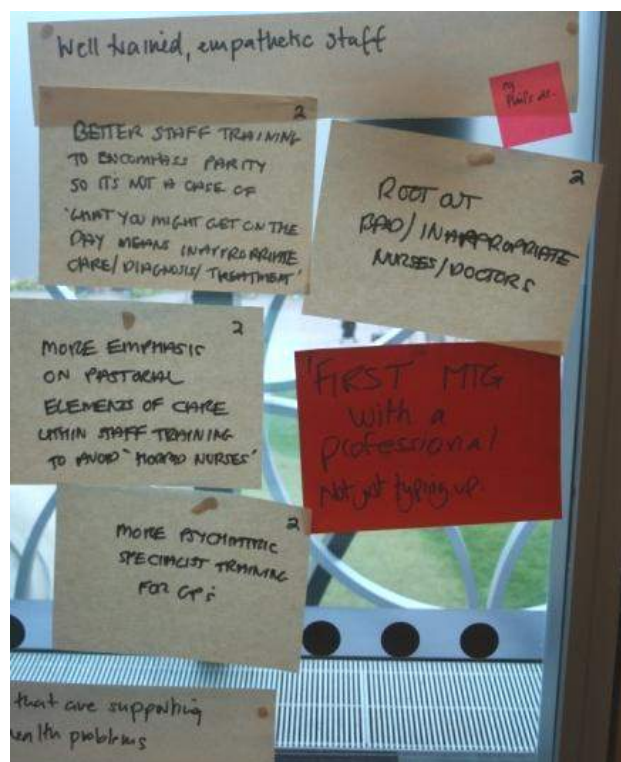 Well trained, empathetic staff
my
Phil's
2
BETTER STAFF TRAINING
TO ENCOMPASS PARITY
SO IT'S NOT A CASE OF
'WHAT YOU MIGHT GET ON THE
DAY MEANS INAPPROPRIATE
CARE/DIAGNOSIS/TREATMENT'
2
ROOT OUT
BAD/INAPPROPRIATE
NURSES/DOCTORS
2
MORE EMPHASIS
ON PASTORAL
ELEMENTS OF CARE
WITHIN STAFF TRAINING
TO AVOID 'HORRID NURSES'
'FIRST' MTG
with a
professional
Not just typing up.
2
MORE PSYCHIATRIC
SPECIALIST TRAINING
FOR GPs
that are supporting
health problems